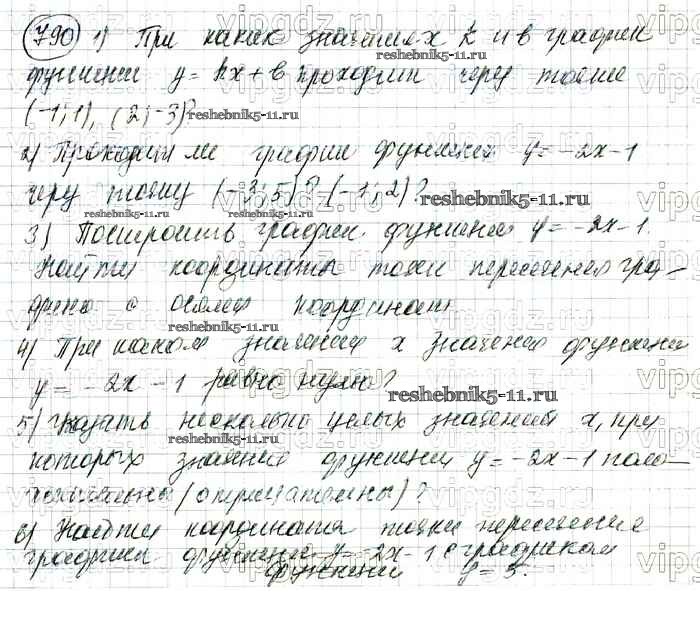 790 1) При каких значениях k и b график
функции y = kx + b проходит через точки
(-1; 1), (2; -3)?
reshebnik5-11.ru
2) Проходит ли график функции y = -2x - 1
через точку (-3; 5)? (-1; 2)?
reshebnik5-11.ru
reshebnik5-11.ru reshebnik5-11.ru
3) Построить график функции y = -2x - 1.
Найти координаты точки пересечения гра-
фика с осями координат
reshebnik5-11.ru
4) При каком значении x значение функции
y = -2x - 1 равно нулю?
reshebnik5-11.ru
5) Указать несколько целых значений x, при
reshebnik5-11.ru
которых значение функции y = -2x - 1 поло-
жительны (отрицательны)?
6) Найти координаты точки пересечения
графика функции y = -2x - 1 с графиком
функции y = 5.
vipgdz.ru